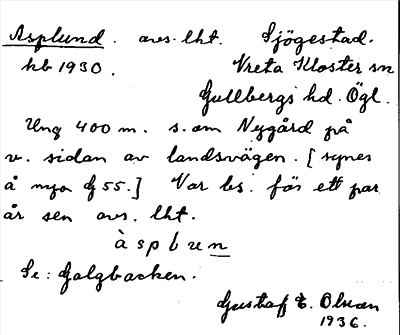 Asplund. avs. lht. Sjögestad.
kb 1930. Vreta Kloster sn
Gullbergs hd. Ögl.
Ung 400 m. s. om Nygård på
v. sidan av landsvägen. [synes
å mya G 55.] Var bs. för ett par
år sen avs. lht.
àspbun
Se: Galgbacken.
Gustaf E. Olsson
1936.